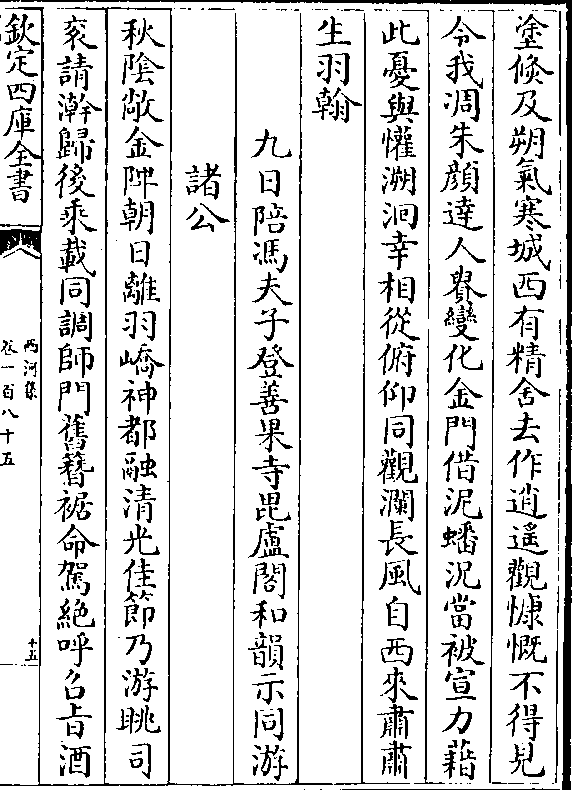 塗倐及朔氣寒城西有精舍去作逍遙觀慷慨不得見
令我凋朱顔達人貴變化金門借泥蟠況當被宣力藉
此憂與懽溯洄幸相從俯仰同觀瀾長風自西來肅肅
生羽翰
九日陪馮夫子登善果寺毘盧閣和韻示同游
諸公
秋陰敞金陴朝日離羽嶠神都融清光佳節乃游眺司
衮請澣歸後乘載同調師門舊簪裾命駕絶呼召㫖酒
欽定四庫全書
西河集
卷一百八十五
十五